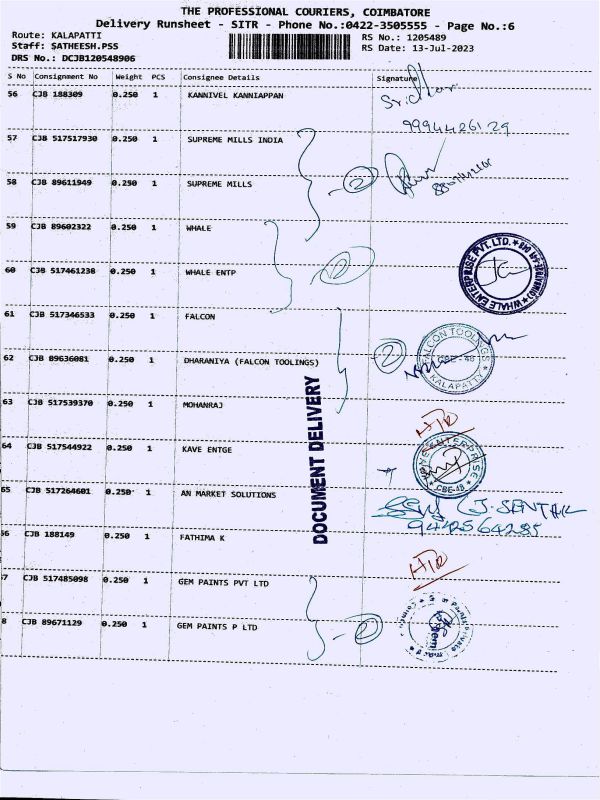 THE PROFESSIONAL COURIERS, COIMBATORE
Delivery Runsheet - SITR - Phone No.:0422-3505555 - Page No.:6
Route: KALAPATTI RS No.: 1205489
Staff: SATHEESH.PSS RS Date: 13-Jul-2023
DRS No.: DCJB120548906
S No Consignment No Weight PCS Consignee Details Signature
56 CJB 188309 0.250 1 KANNIVEL KANNIAPPAN Sridhar
9994426129
57 CJB 517517930 0.250 1 SUPREME MILLS INDIA
2
58 CJB 89611949 0.250 1 SUPREME MILLS
59 CJB 89602322 0.250 1 WHALE
WHALE ENTERPRISE PVT. LTD.
60 CJB 517461238 0.250 1 WHALE ENTP 2
61 CJB 517346533 0.250 1 FALCON
FALCON TOOLINGS CBE-48 KALAPATTY
2
62 CJB 89636081 0.250 1 DHARANIYA (FALCON TOOLINGS)
63 CJB 517539370 0.250 1 MOHANRAJ
DOCUMENT DELIVERY
64 CJB 517544922 0.250 1 KAVE ENTGE
ENTERPRISE CBE-48
65 CJB 517264601 0.250 1 AN MARKET SOLUTIONS
(J. SENTHIL
9442564285
66 CJB 188149 0.250 1 FATHIMA K
7 CJB 517485098 0.250 1 GEM PAINTS PVT LTD
8 CJB 89671129 0.250 1 GEM PAINTS P LTD 2